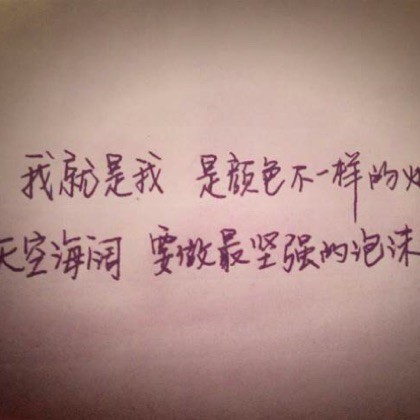 我就是我 是颜色不一样的
天空海阔 要做最坚强的泡沫